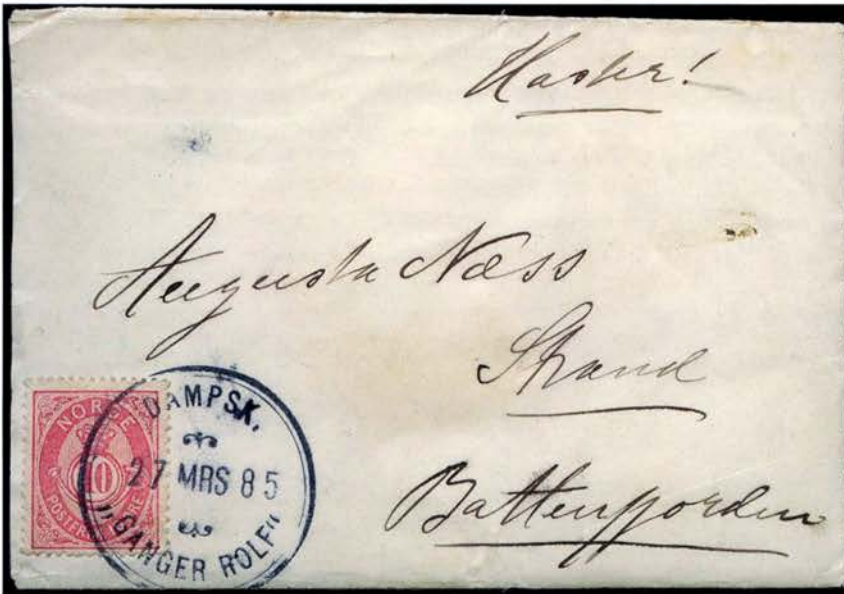 Haster!
Augusta Næss
Strand
Battenfjorden
NORGE
10
POSTFRIM ØRE
DAMPSK.
27 MRS 85
„GANGER ROLF“